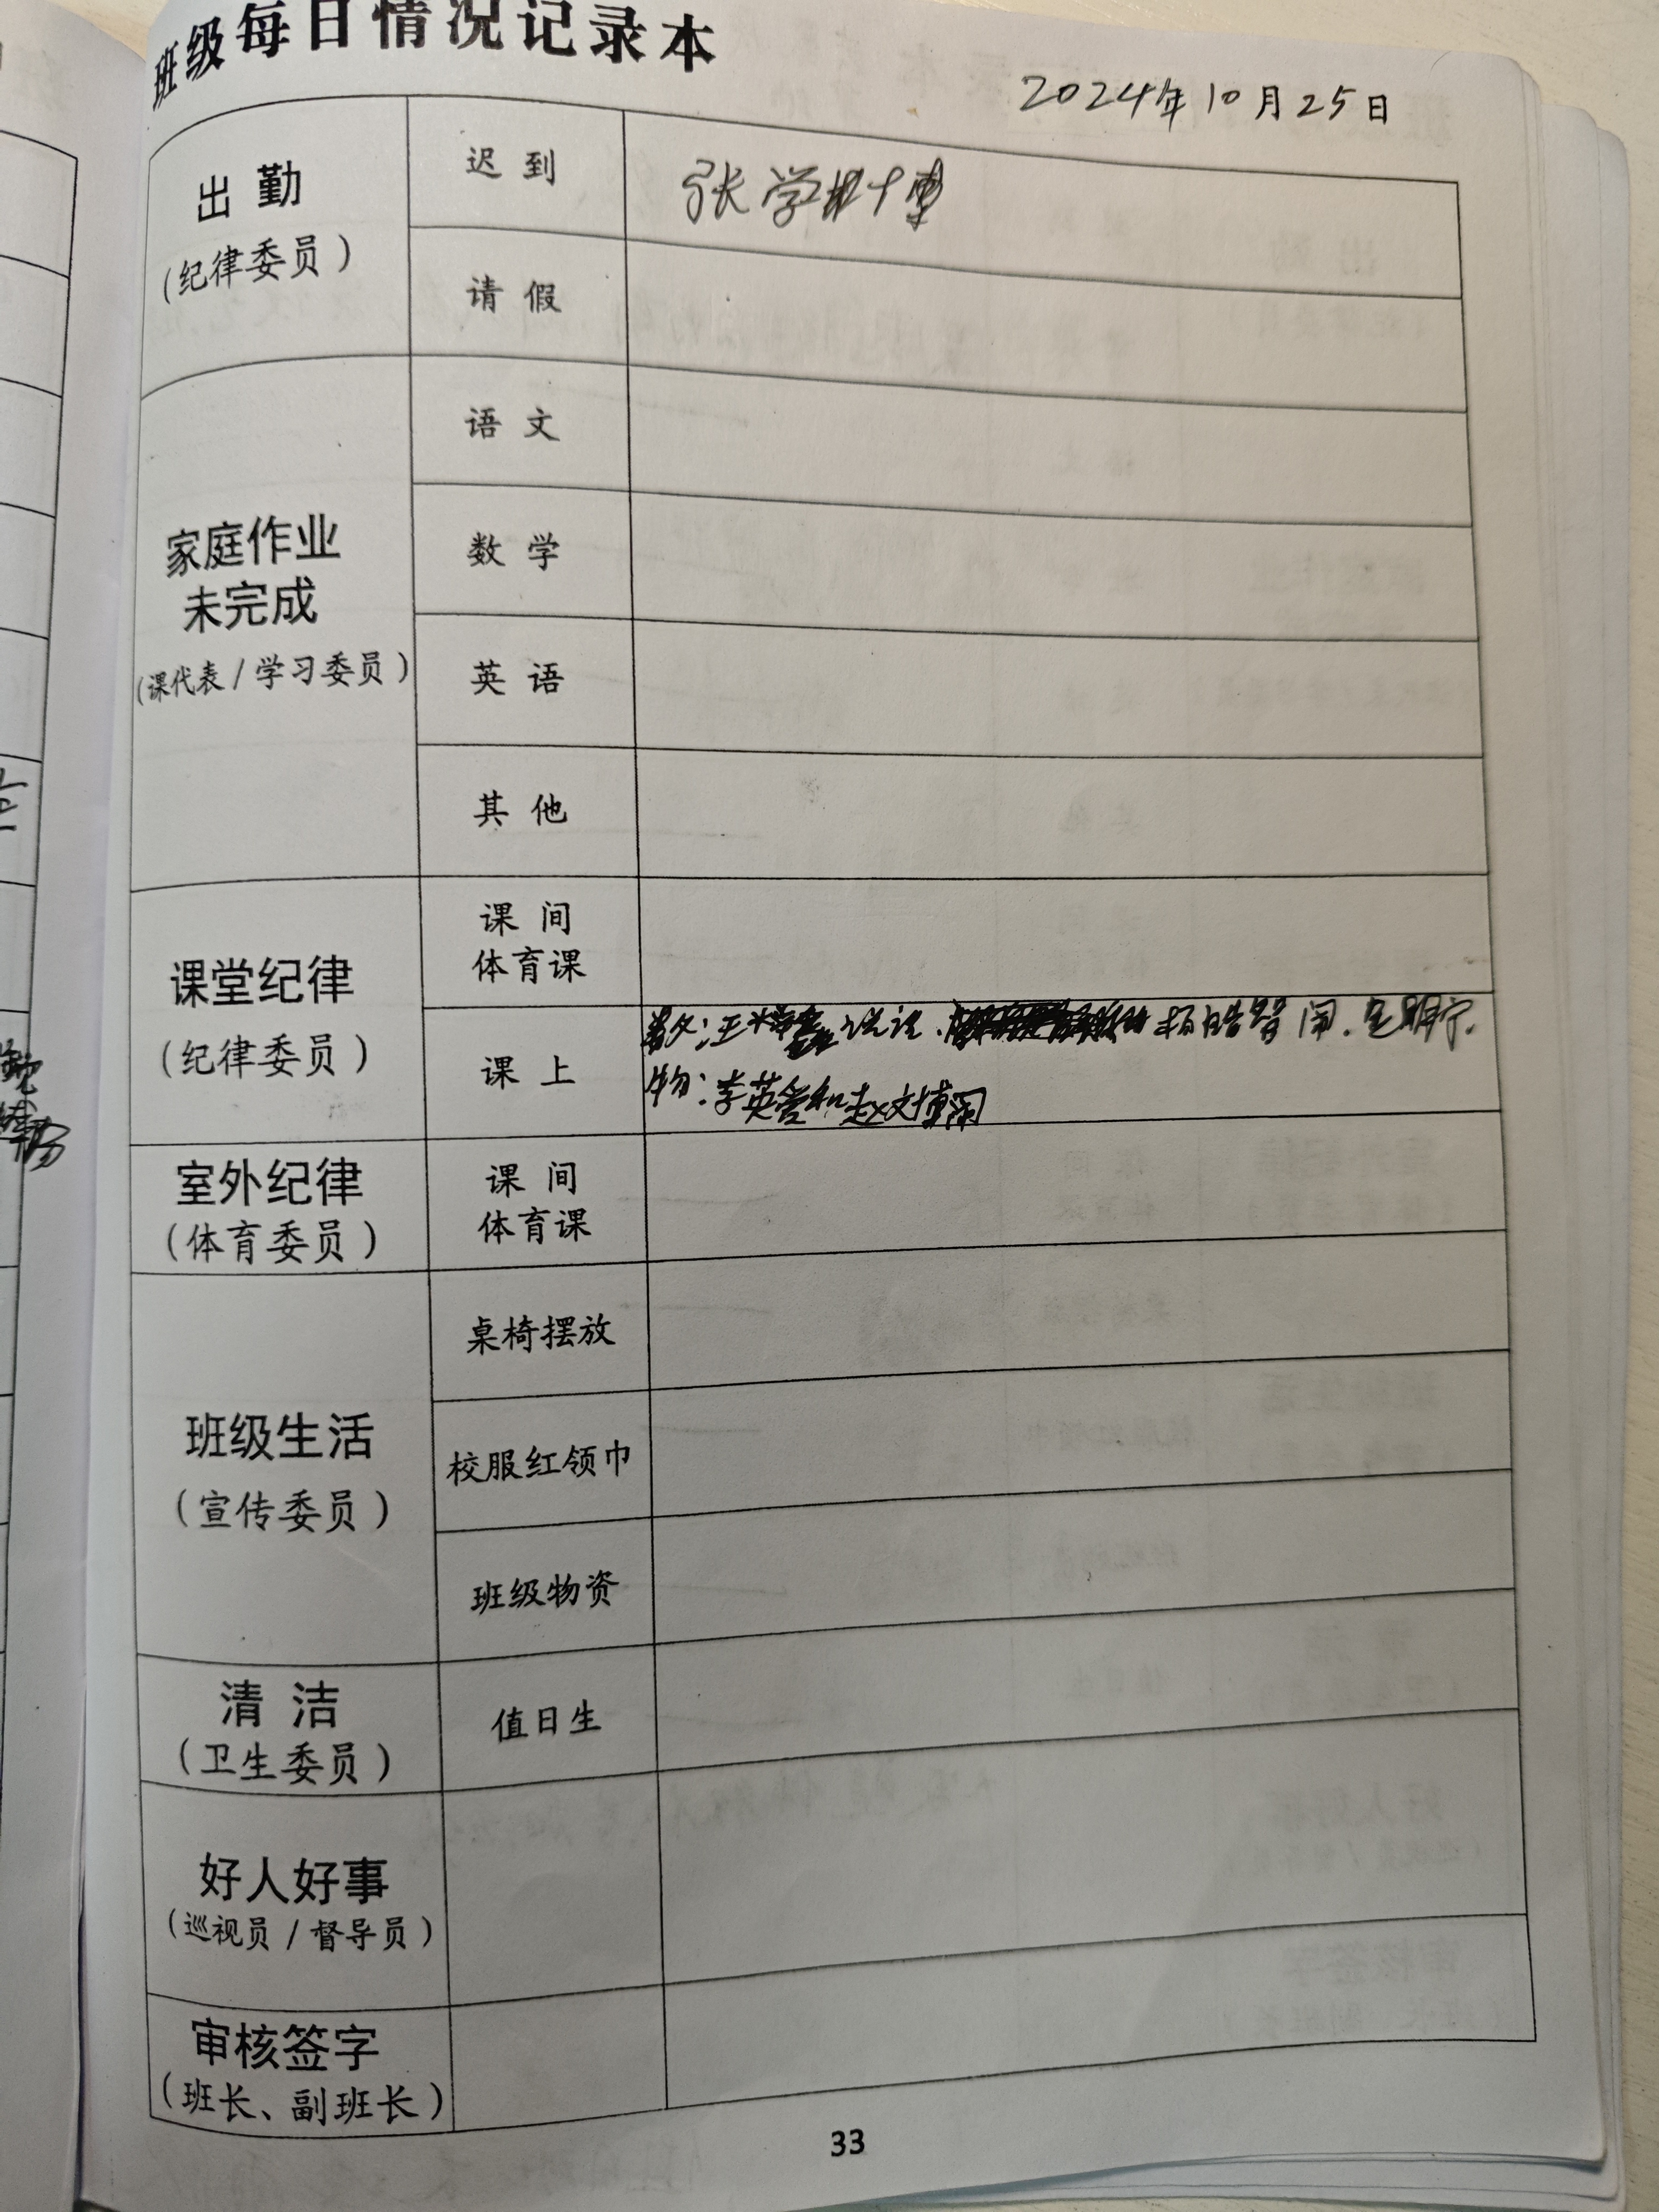 班级每日情况记录本
2024年10月25日
出勤
(纪律委员)
迟到
张学
请假
家庭作业
未完成
(课代表/学习委员)
语文
数学
英语
其他
课堂纪律
(纪律委员)
课间
体育课
课上
说话、闹.
物:李英爱和赵文博闹
室外纪律
(体育委员)
课间
体育课
班级生活
(宣传委员)
桌椅摆放
校服红领巾
班级物资
清洁
(卫生委员)
值日生
好人好事
(巡视员/督导员)
审核签字
(班长、副班长)
33